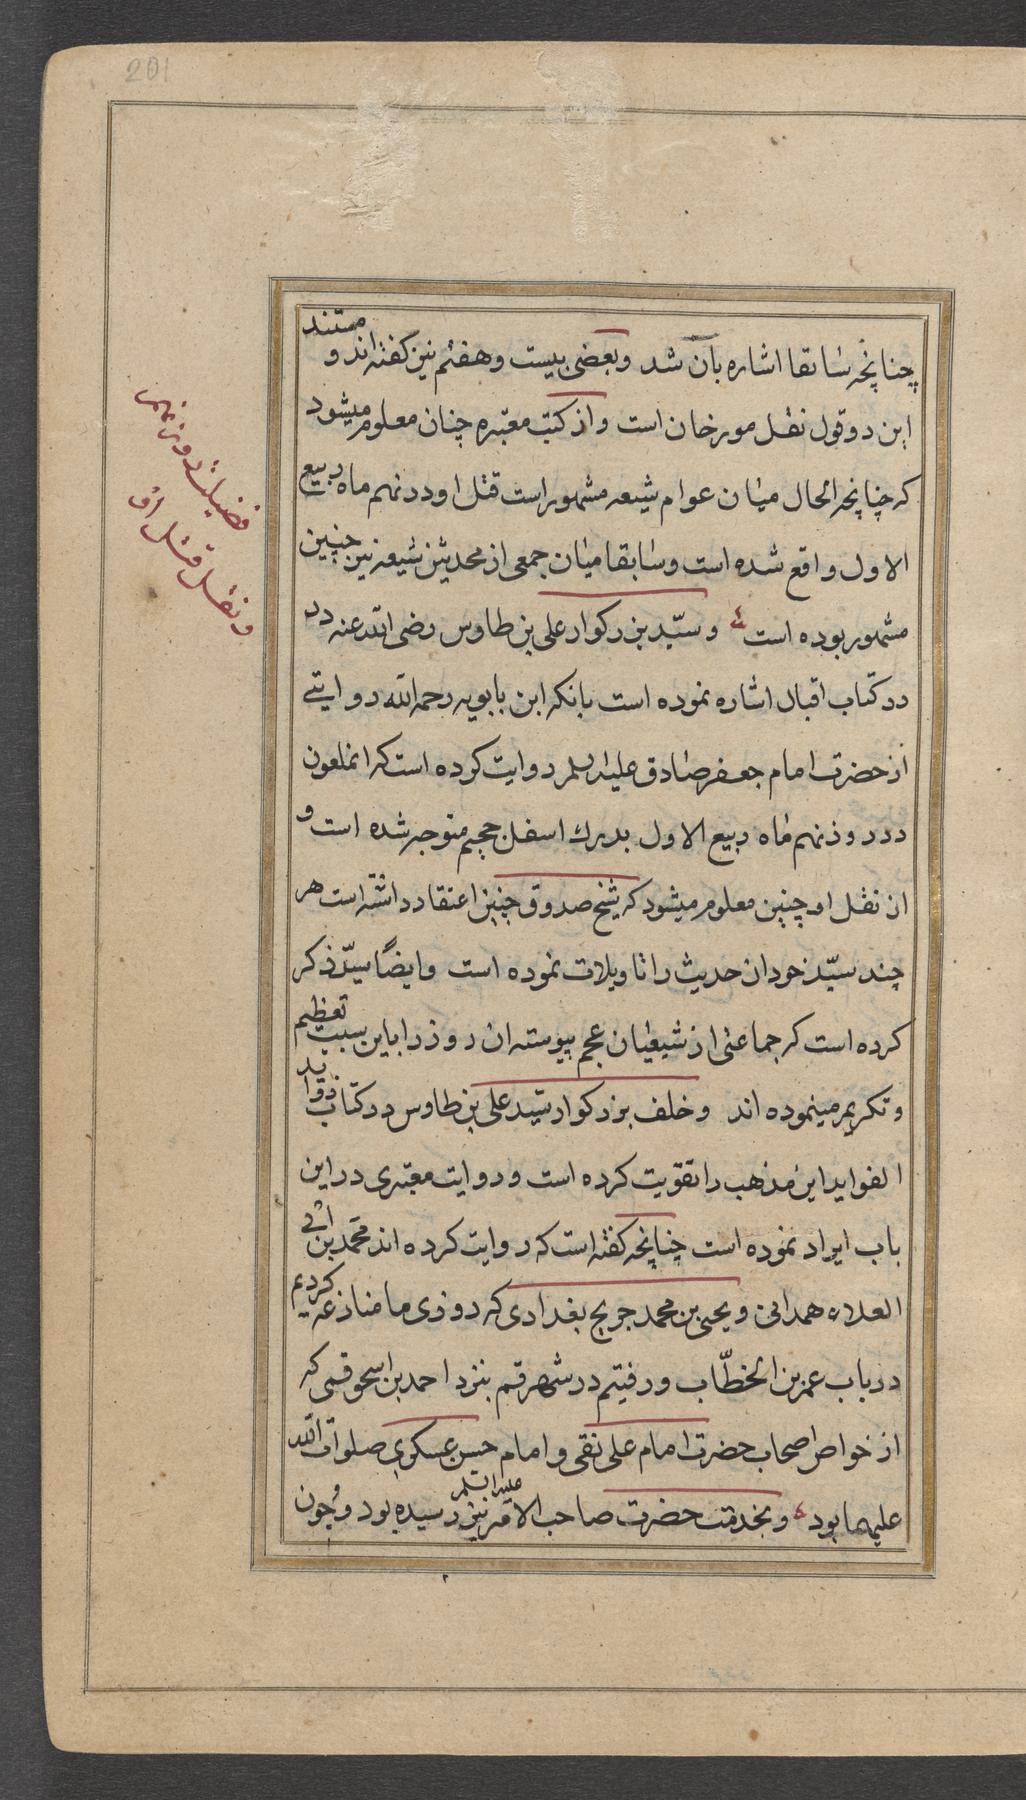 201
چنانچه سابقا اشاره بآن شد وبعضی بیست وهفتم نیز گفته‌اند و مستند
این دو قول نقل مورخان است واز کتب معتبره چنان معلوم میشود
که چنانچه الحال میان عوام شیعه مشهور است قتل او در نهم ماه ربیع
الاول واقع شده است وسابقا میان جمعی از محدثین شیعه نیز چنین
مشهور بوده است و سیّد بزرکوار علی بن طاوس رضی الله عنه در
در کتاب اقبال اشاره نموده است بانکه ابن بابویه رحمه الله روایتی
از حضرت امام جعفر صادق علیه السلم روایت کرده است که انملعون
در روز نهم ماه ربیع الاول بدرک اسفل جحیم متوجه شده است و
از نقل او چنین معلوم میشود که شیخ صدوق چنین اعتقاد داشته است هر
چند سیّد خود ان حدیث را تاویلات نموده است وایضًا سیّد ذکر
کرده است که جماعتی از شیعیان عجم پیوسته ان روز را باین سبب تعظیم
و تکریم مینموده اند وخلف بزرکوار سیّد علی بن طاوس در کتاب زواید
الفواید این مذهب را تقویت کرده است و روایت معتبری در این
باب ایراد نموده است چنانچه کفته است که روایت کرده اند محمد بن ابی
العلاء همدانی و یحیی بن محمد جریح بغدادی که روزی ما منازعه کردیم
در باب عمر بن الخطّاب و رفتیم در شهر قم بنزد احمد بن اسحق قمی که
از خواص اصحاب حضرت امام علی نقی و امام حسن عسکری صلوات الله
علیهما بود و بخدمت حضرت صاحب الامر علیه السلم نیز رسیده بود و چون
فضیلت روز نهم
و نقل قتل او